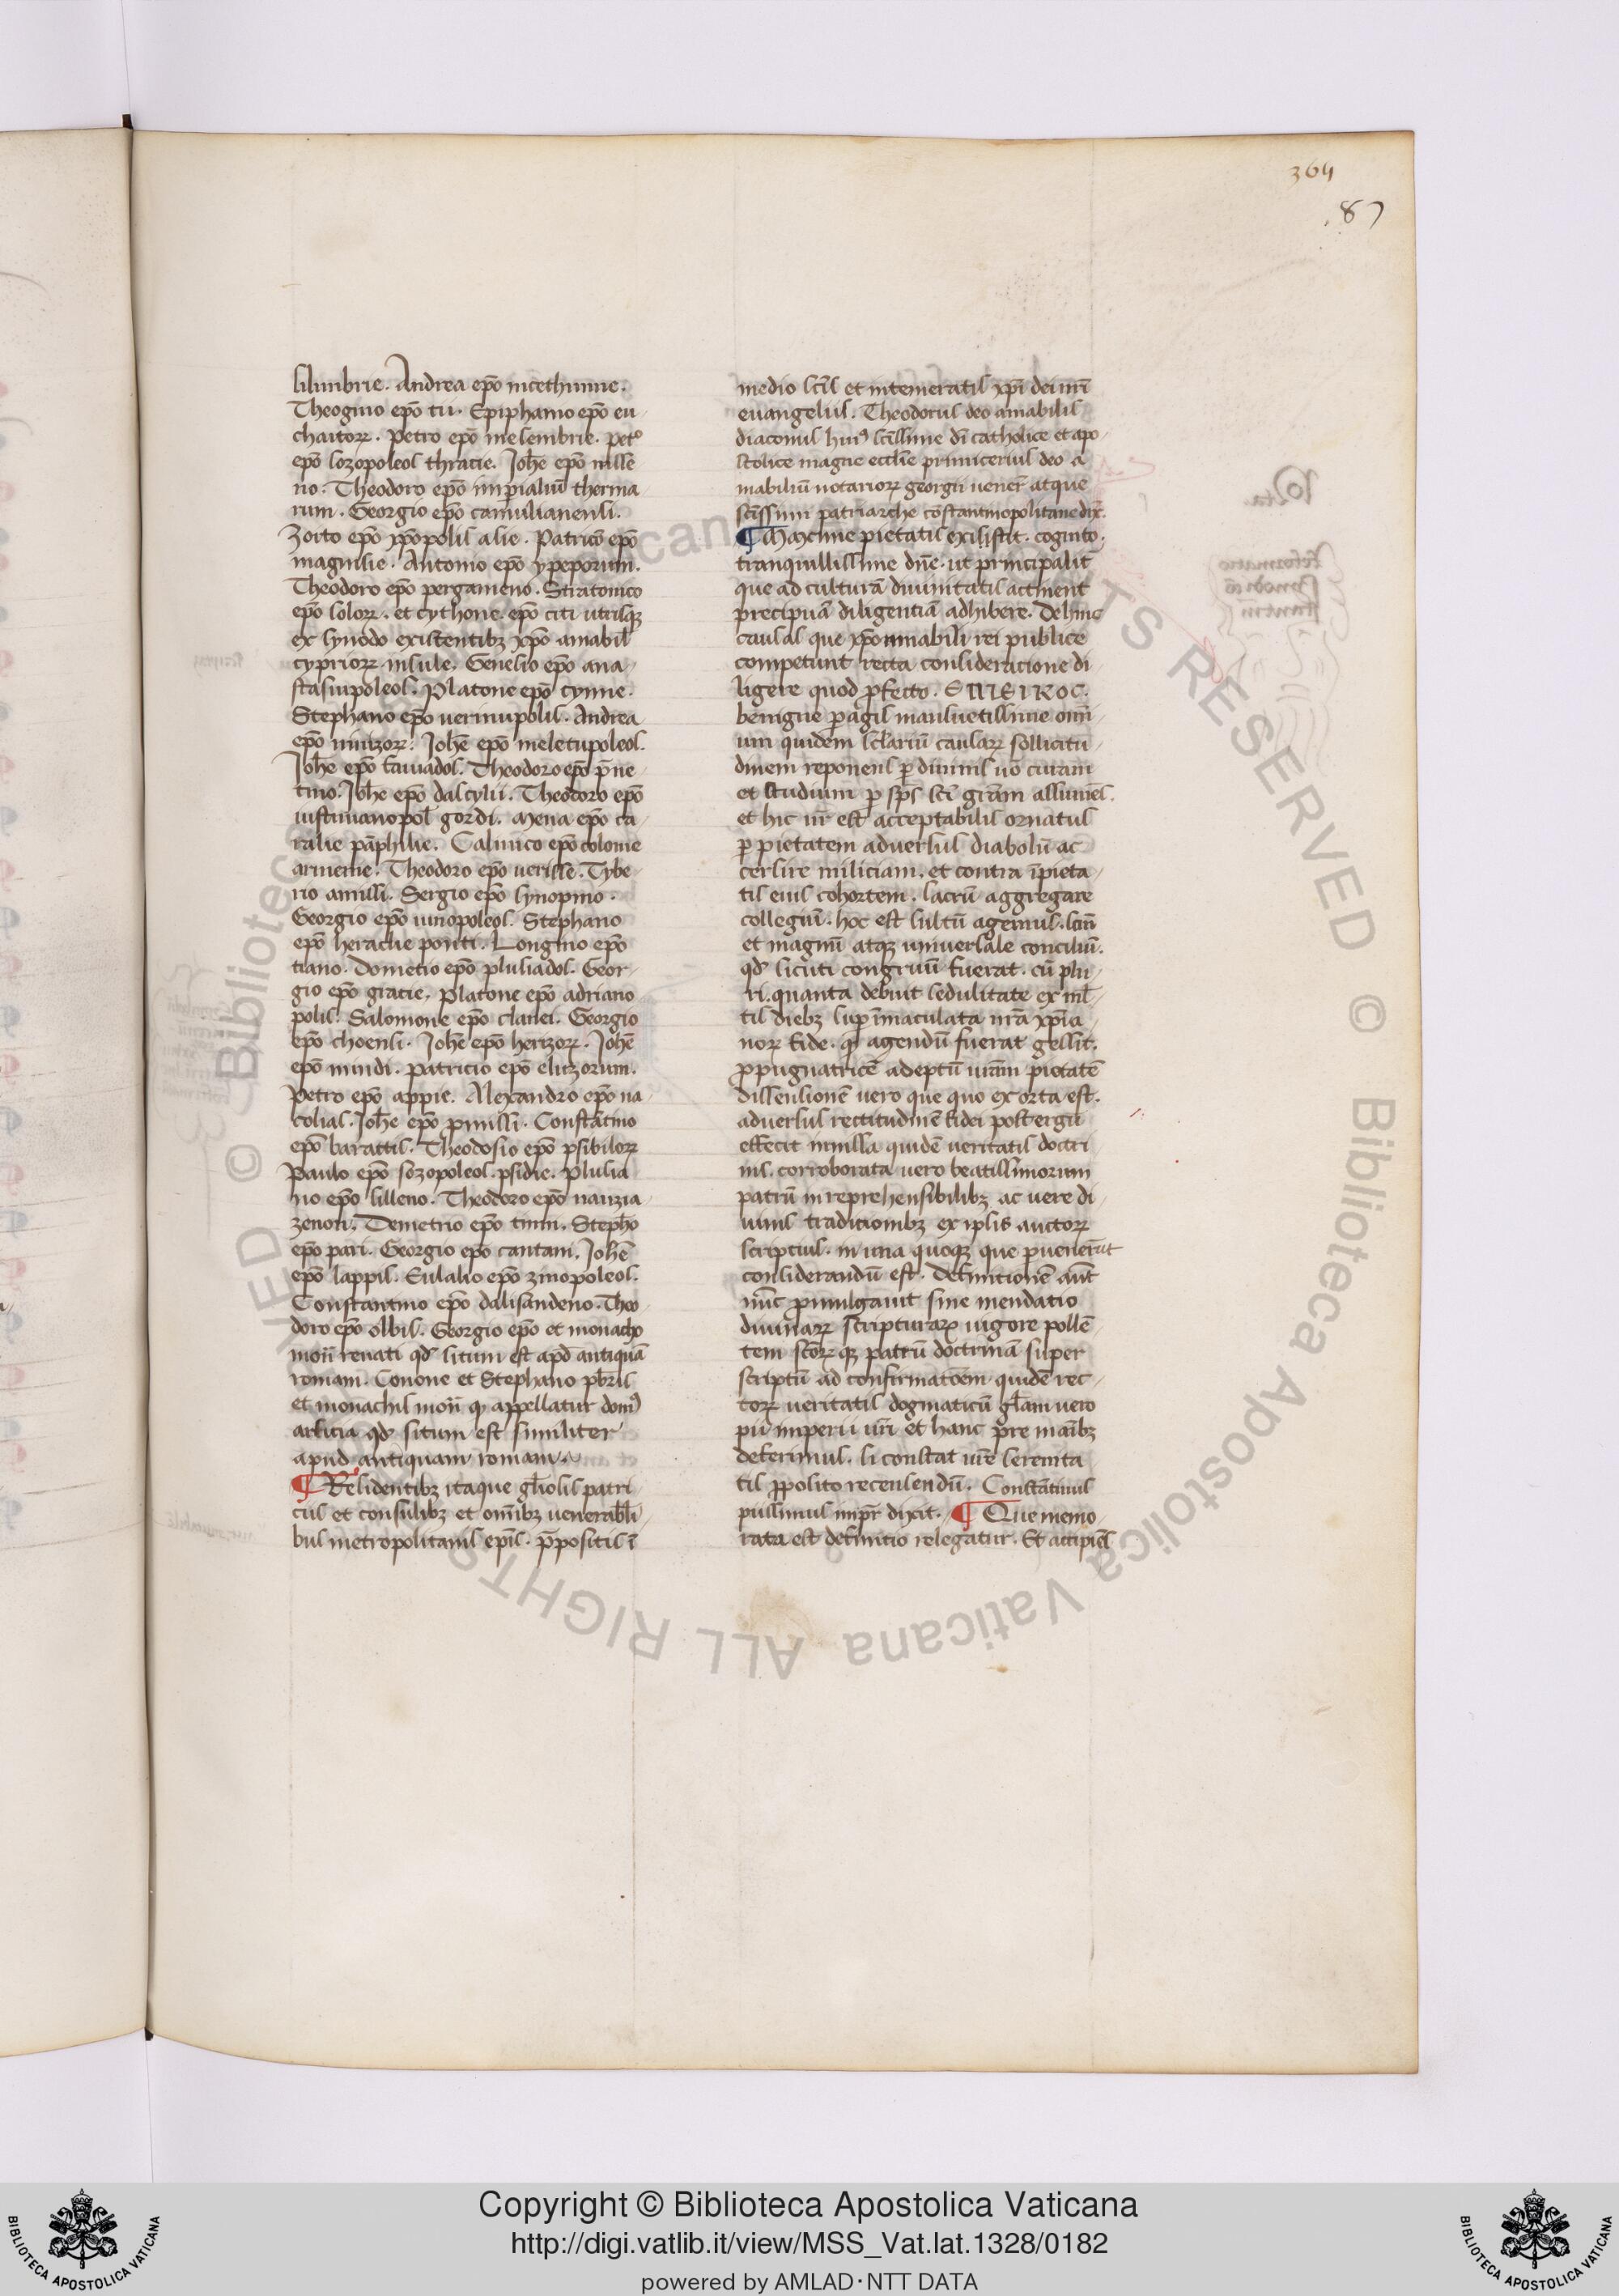 364
87
silimbrie. Andrea epō mcethimne.
Theogino epō tii. Epiphanio epō eu
chaitoꝝ. Petro epō mesembrie. Petº
epō sozopoleos thracie. Joh̄e epō nisse
no. Theodoro epō imꝑialiū therma
rum. Georgio epō camulianensi.
Zoito epō xp̄opolis asie. Patricō epō
magnisie. Antonio epō ypeporum.
Theodoro epō pergameno. Stratonico
epō soloꝝ. et cythone epō citi utrisqꝫ
ex synodo existentibꝫ xp̄o amabil
cyprioꝝ insule. Genesio epō ana
stasiupoleos. Platone epō cynne.
Stephano epō uerinupolis. Andrea
epō mnizoꝝ. Joh̄e epō meletupoleos.
Joh̄e epō t̄auiados. Theodoro epō p̄ne
tino. Joh̄e epō dascylii. Theodoro epō
iustinianopol gordi. Mena epō ca
ralie pāphilie. Calinico epō colonie
armenie. Theodoro epō uerisse. Tybe
rio amissi. Sergio epō synopino.
Georgio epō iunopoleos. Stephano
epō heraclie ponti. Longino epō
tiano. Dometio epō plusiados. Geor
gio epō gracie. Platone epō adriano
polis. Salomone epō clanei. Georgio
epō choensi. Joh̄e epō herizoꝝ. Joh̄e
epō mindi. Patricio epō eluzorum.
Petro epō appie. Alexandro epō na
colias. Joh̄e epō pinissi. Constātino
epō barattis. Theodosio epō psibiloꝝ
Paulo epō sozopoleos. psidie. Plusia
no epō silleno. Theodoro epō nanzia
zenon. Demetrio epō tinin. Stepho
epō pari. Georgio epō cantani. Joh̄e
epō lappis. Eulalio epō zinopoleos.
Constantino epō dalisandeno. Theo
doro epō olbis. Georgio epō et monacho
mon̄ renati qd̄ situm est apd̄ antiquā
romam. Conone et Stephano pb̄ris
et monachis mon̄ qd̄ appellatur domꝰ
arsicia qd̄ situm est similiter
apud antiquam romam.
¶ Residentibꝫ itaque gl̄iosis patri
ciis et consulibꝫ et omībꝫ uenerab̄li
bus metropolitanis epīs. p̄positis ī
medio sc̄is et intemeratis xp̄i dei nr̄i
euangeliis. Theodorus deo amabilis
diaconus huiꝰ sc̄issime dī catholice et apo
stolice magne eccl̄ie primicerius deo a
mabiliū notarioꝝ georgii uener̄ atque
sc̄issimi patriarche cōstantinopolitane dix̄.
¶ Maxime pietatis existit. cognito.
tranquillissime dn̄e. ut principalit̄
que ad culturā diuinitatis actinent
precipuā diligentiā adhibere. Dehinc
causas que xp̄o amabili rei publice
competunt recta consideracione di
ligere quod ꝑfecto. EMEIKOC.
benigne ꝑagis mansuetissime omi
um quidem sclariū causaꝝ sollicitu
dinem reponens ꝑ diuinis uō curam
et studium ꝑ sps̄ sc̄i grām assumēs.
et hic nr̄ est acceptabilis ornatus
ꝑ pietatem aduersus diabolū ac
cersire miliciam. et contra īpieta
tis eius cohortem. sacrū aggregare
collegiū. hoc est sultū agemus. san̄
et magnū atqꝫ uniuersale conciliū.
qd̄ sicuti congruū fuerat. cū plu
ri. quanta debuit sedulitate ex ml̄
tis diebꝫ suꝑ īmaculata nrā xp̄ia
noꝝ fide. qd̄ agendū fuerat gessit.
ꝓpugnatricē adeptū urām pietatē
dissensionē uero que quo exorta est.
aduersus rectitudinē fidei postergū
effecit munilla quidē ueritatis doctri
nis. corroborata uero beatissimorum
patrū inreprehensibilibꝫ ac uere di
uinis traditionibꝫ ex ipsis auctoꝝ
scriptius. in una quoqꝫ que ꝑuenerūt
considerandū est. Definitionē aūt
nūc promulgauit sine mendatio
diuinaꝝ scripturaꝝ uigore pollē
tem sc̄oꝝ qꝫ patrū doctrinā super
scriptū ad confirmatōem quidē rec
toꝝ ueritatis dogmaticū gl̄am uero
pii imperii ur̄i et hanc pre manībꝫ
deferimus. si constat ur̄e serenita
tis ꝓpolito recensendū. Constātinus
piissimus impr̄ dixit. ¶ Que memo
rata est definitio relegatur. Et accipiēs
Copyright © Biblioteca Apostolica Vaticana
http://digi.vatlib.it/view/MSS_Vat.lat.1328/0182
powered by AMLAD·NTT DATA
BIBLIOTECA APOSTOLICA VATICANA
BIBLIOTECA APOSTOLICA VATICANA
© Biblioteca Apostolica Vaticana ALL RIGHTS RESERVED